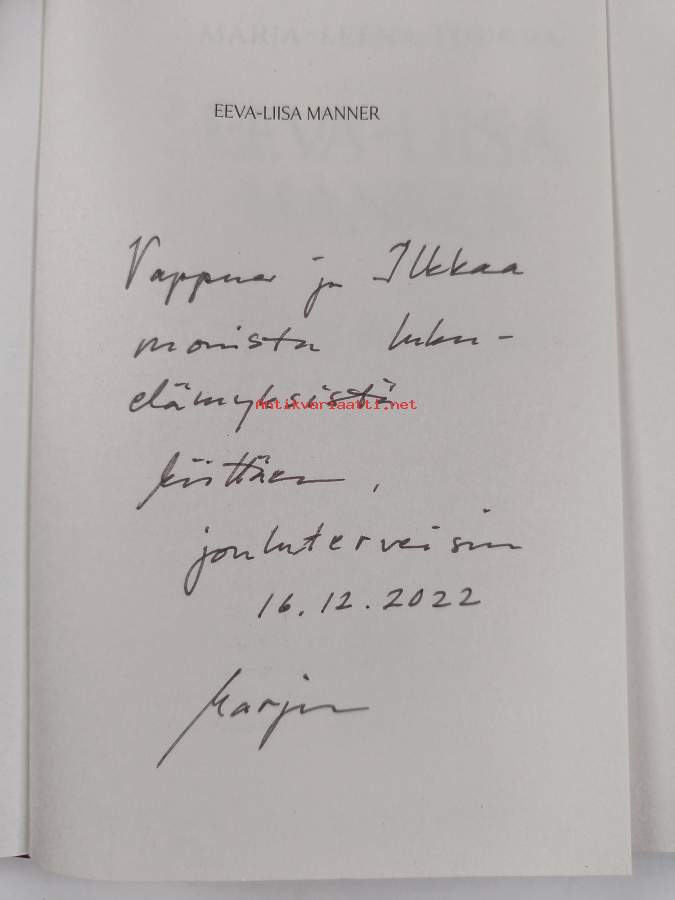 EEVA-LIISA MANNER
Vappua ja Ilkkaa
monista luku-
elämyksistä
Antikvariaatti.net
kiittäen,
jouluterveisin
16.12.2022
Marja